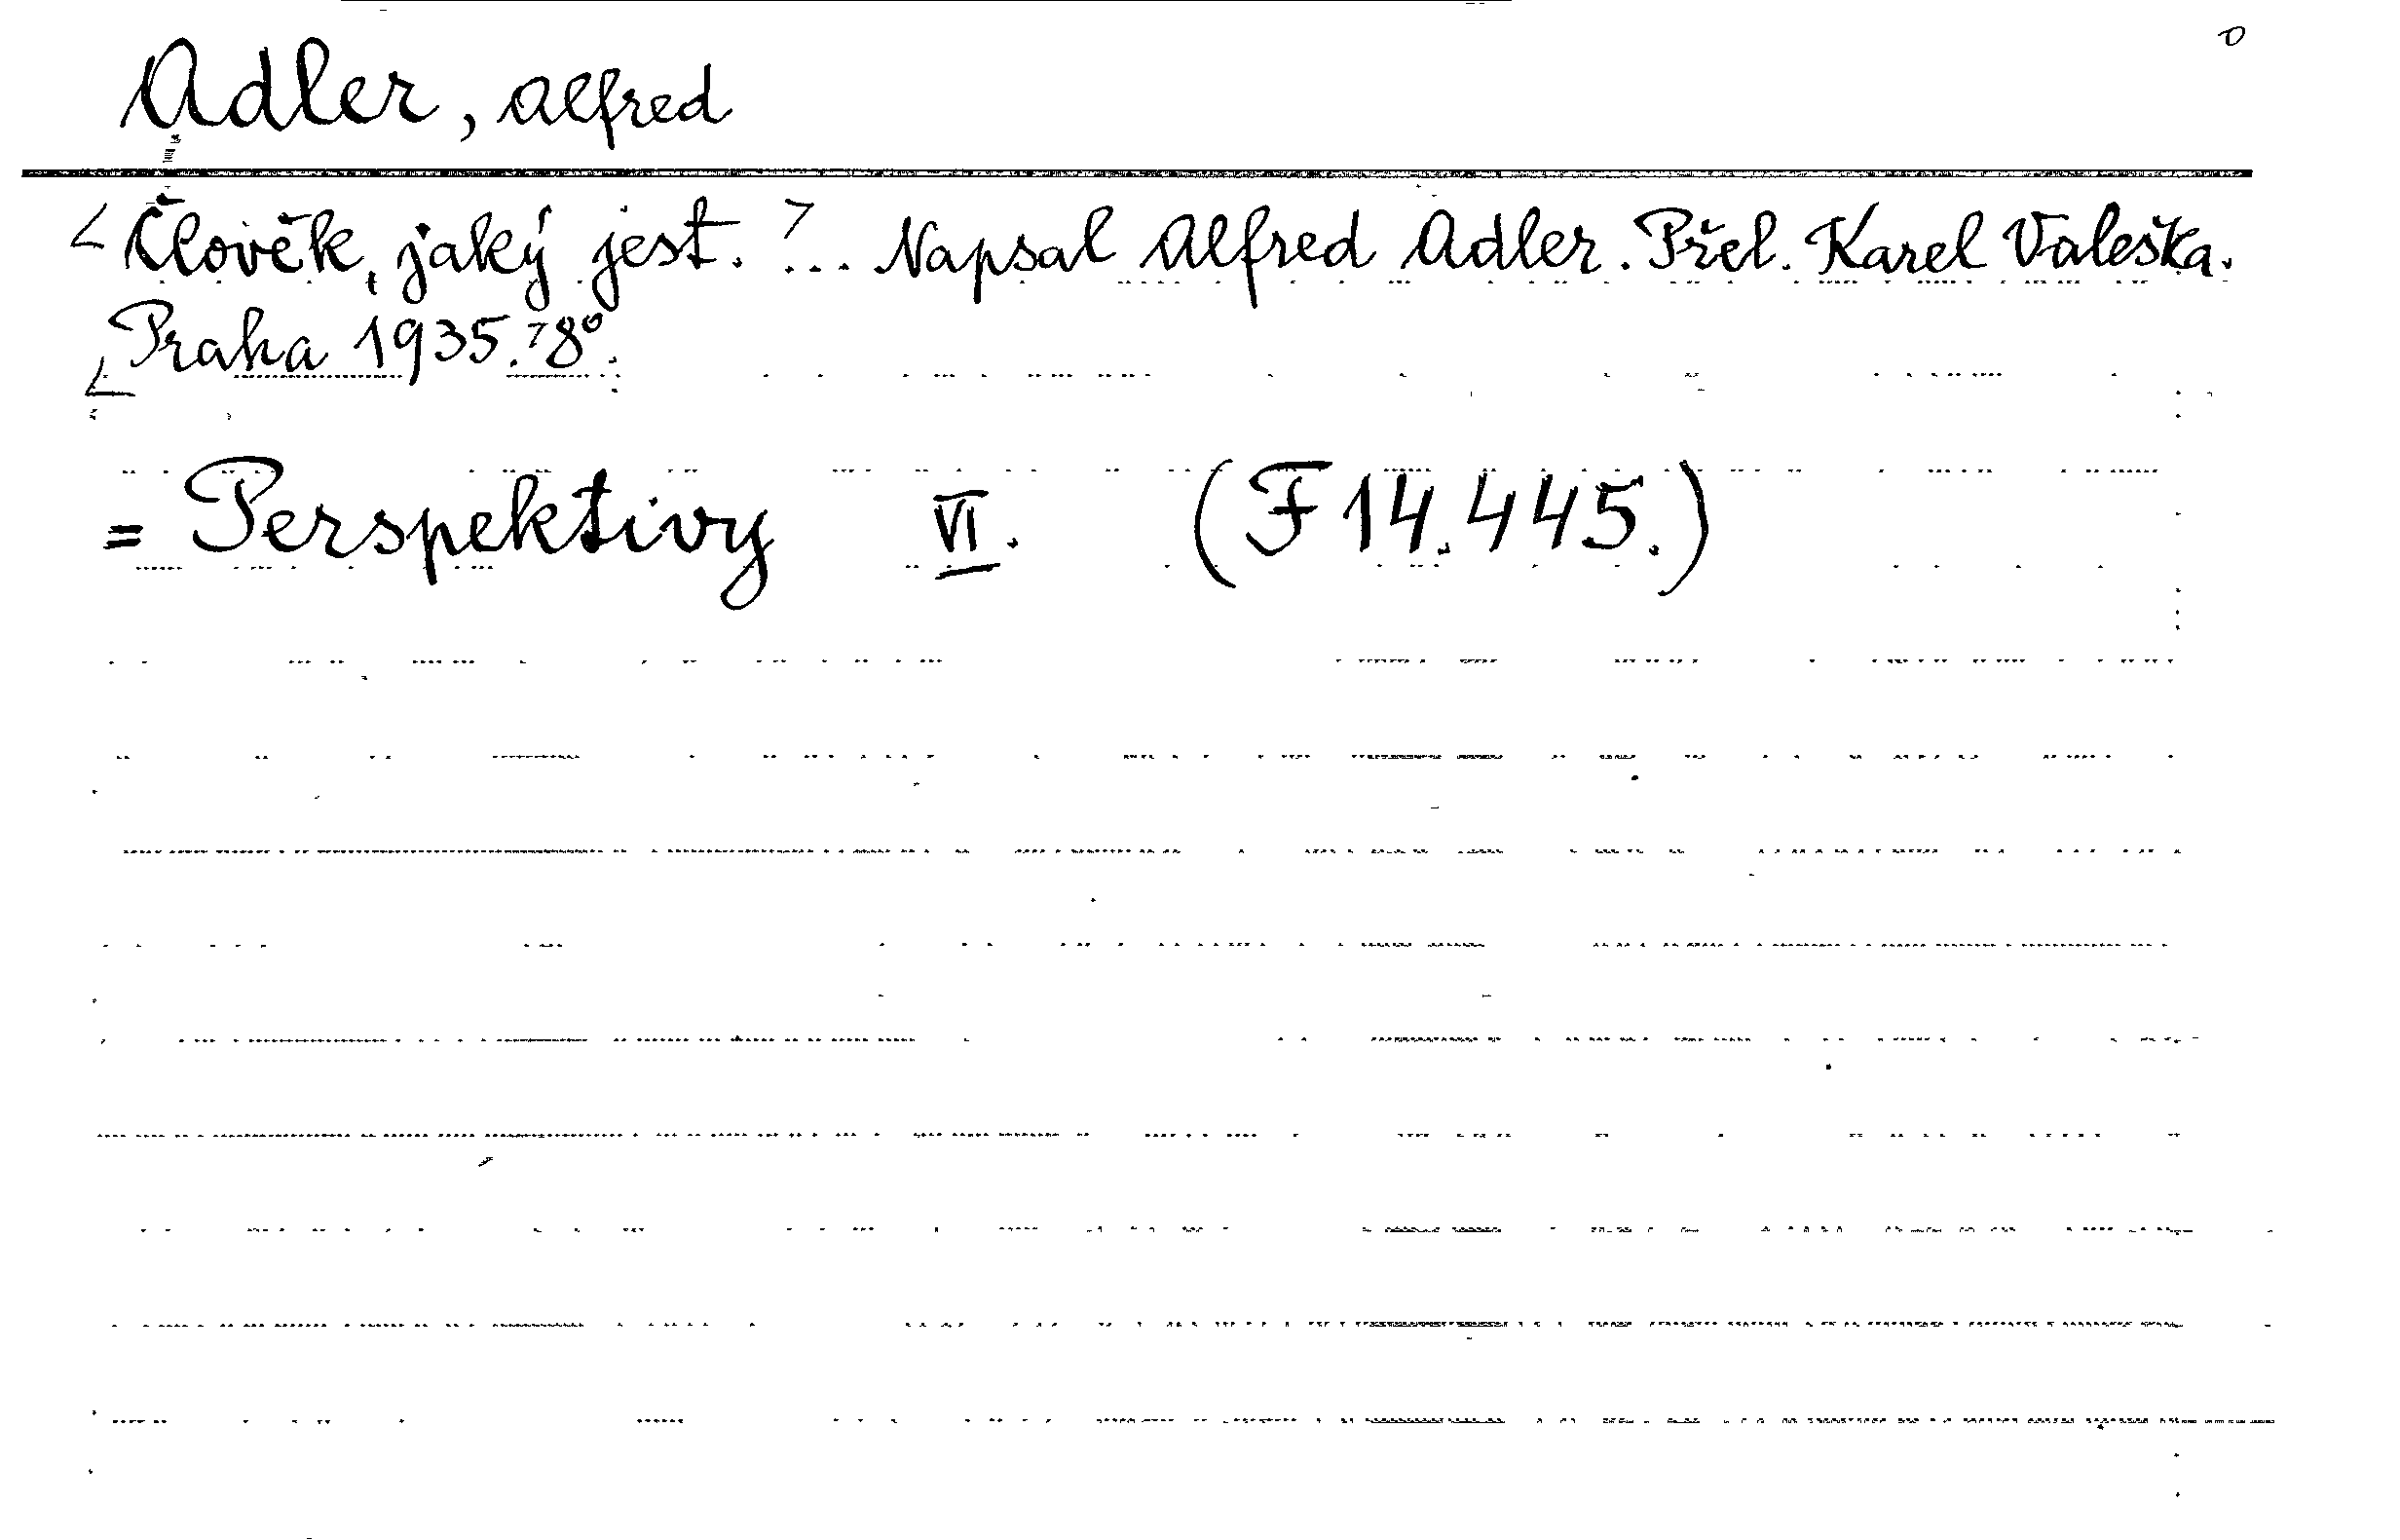 Adler, Alfred
Člověk, jaký jest. ... Napsal Alfred Adler. Přel. Karel Valeška.
Praha 1935. 8°.
= Perspektivy VI. (F 14.445.)